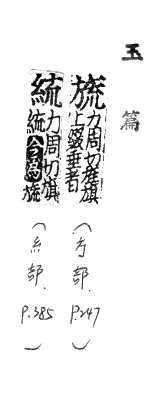 玉篇
旒 力周切旌旗上綴垂者 (方部. P.247)
力周切旗 今為旒 (糸部. P.385)